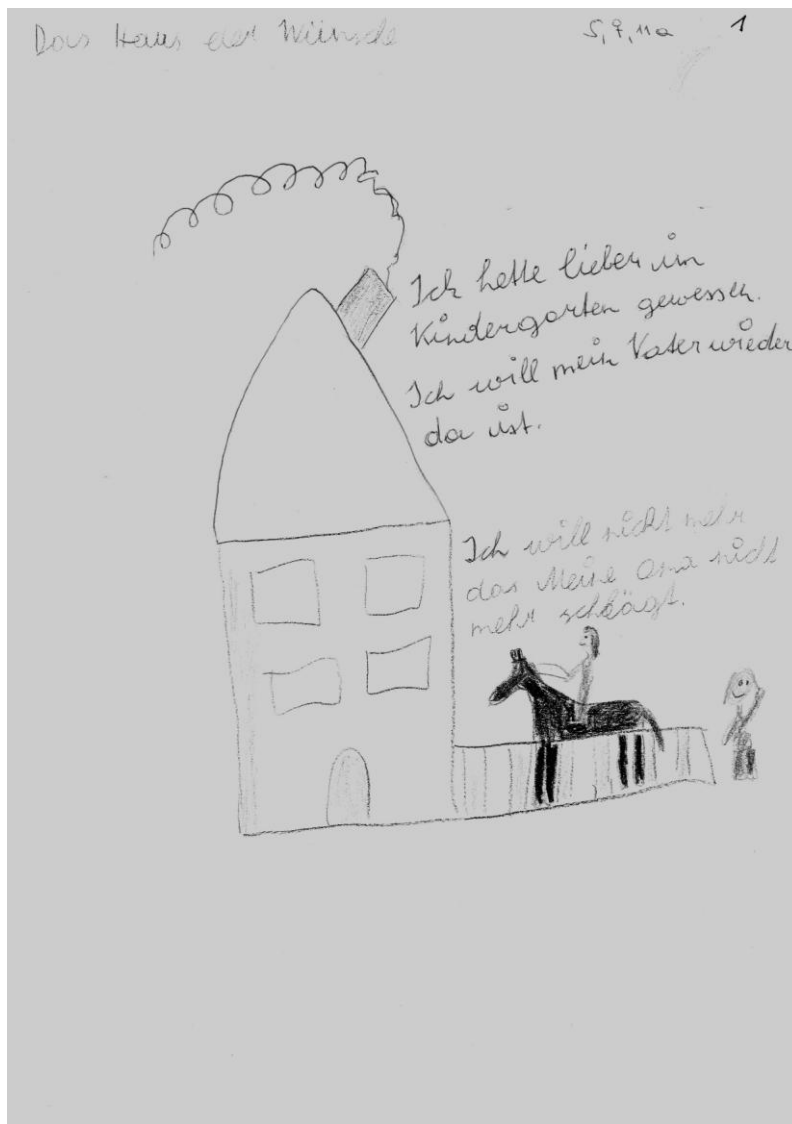 Das Haus der Wünsche
S, ♀, 11a
1
Ich hette lieber im
Kindergarten gewessen.
Ich will mein Vater wieder
da ist.
Ich will nicht mehr
das Meine Oma nicht
mehr schlägt.